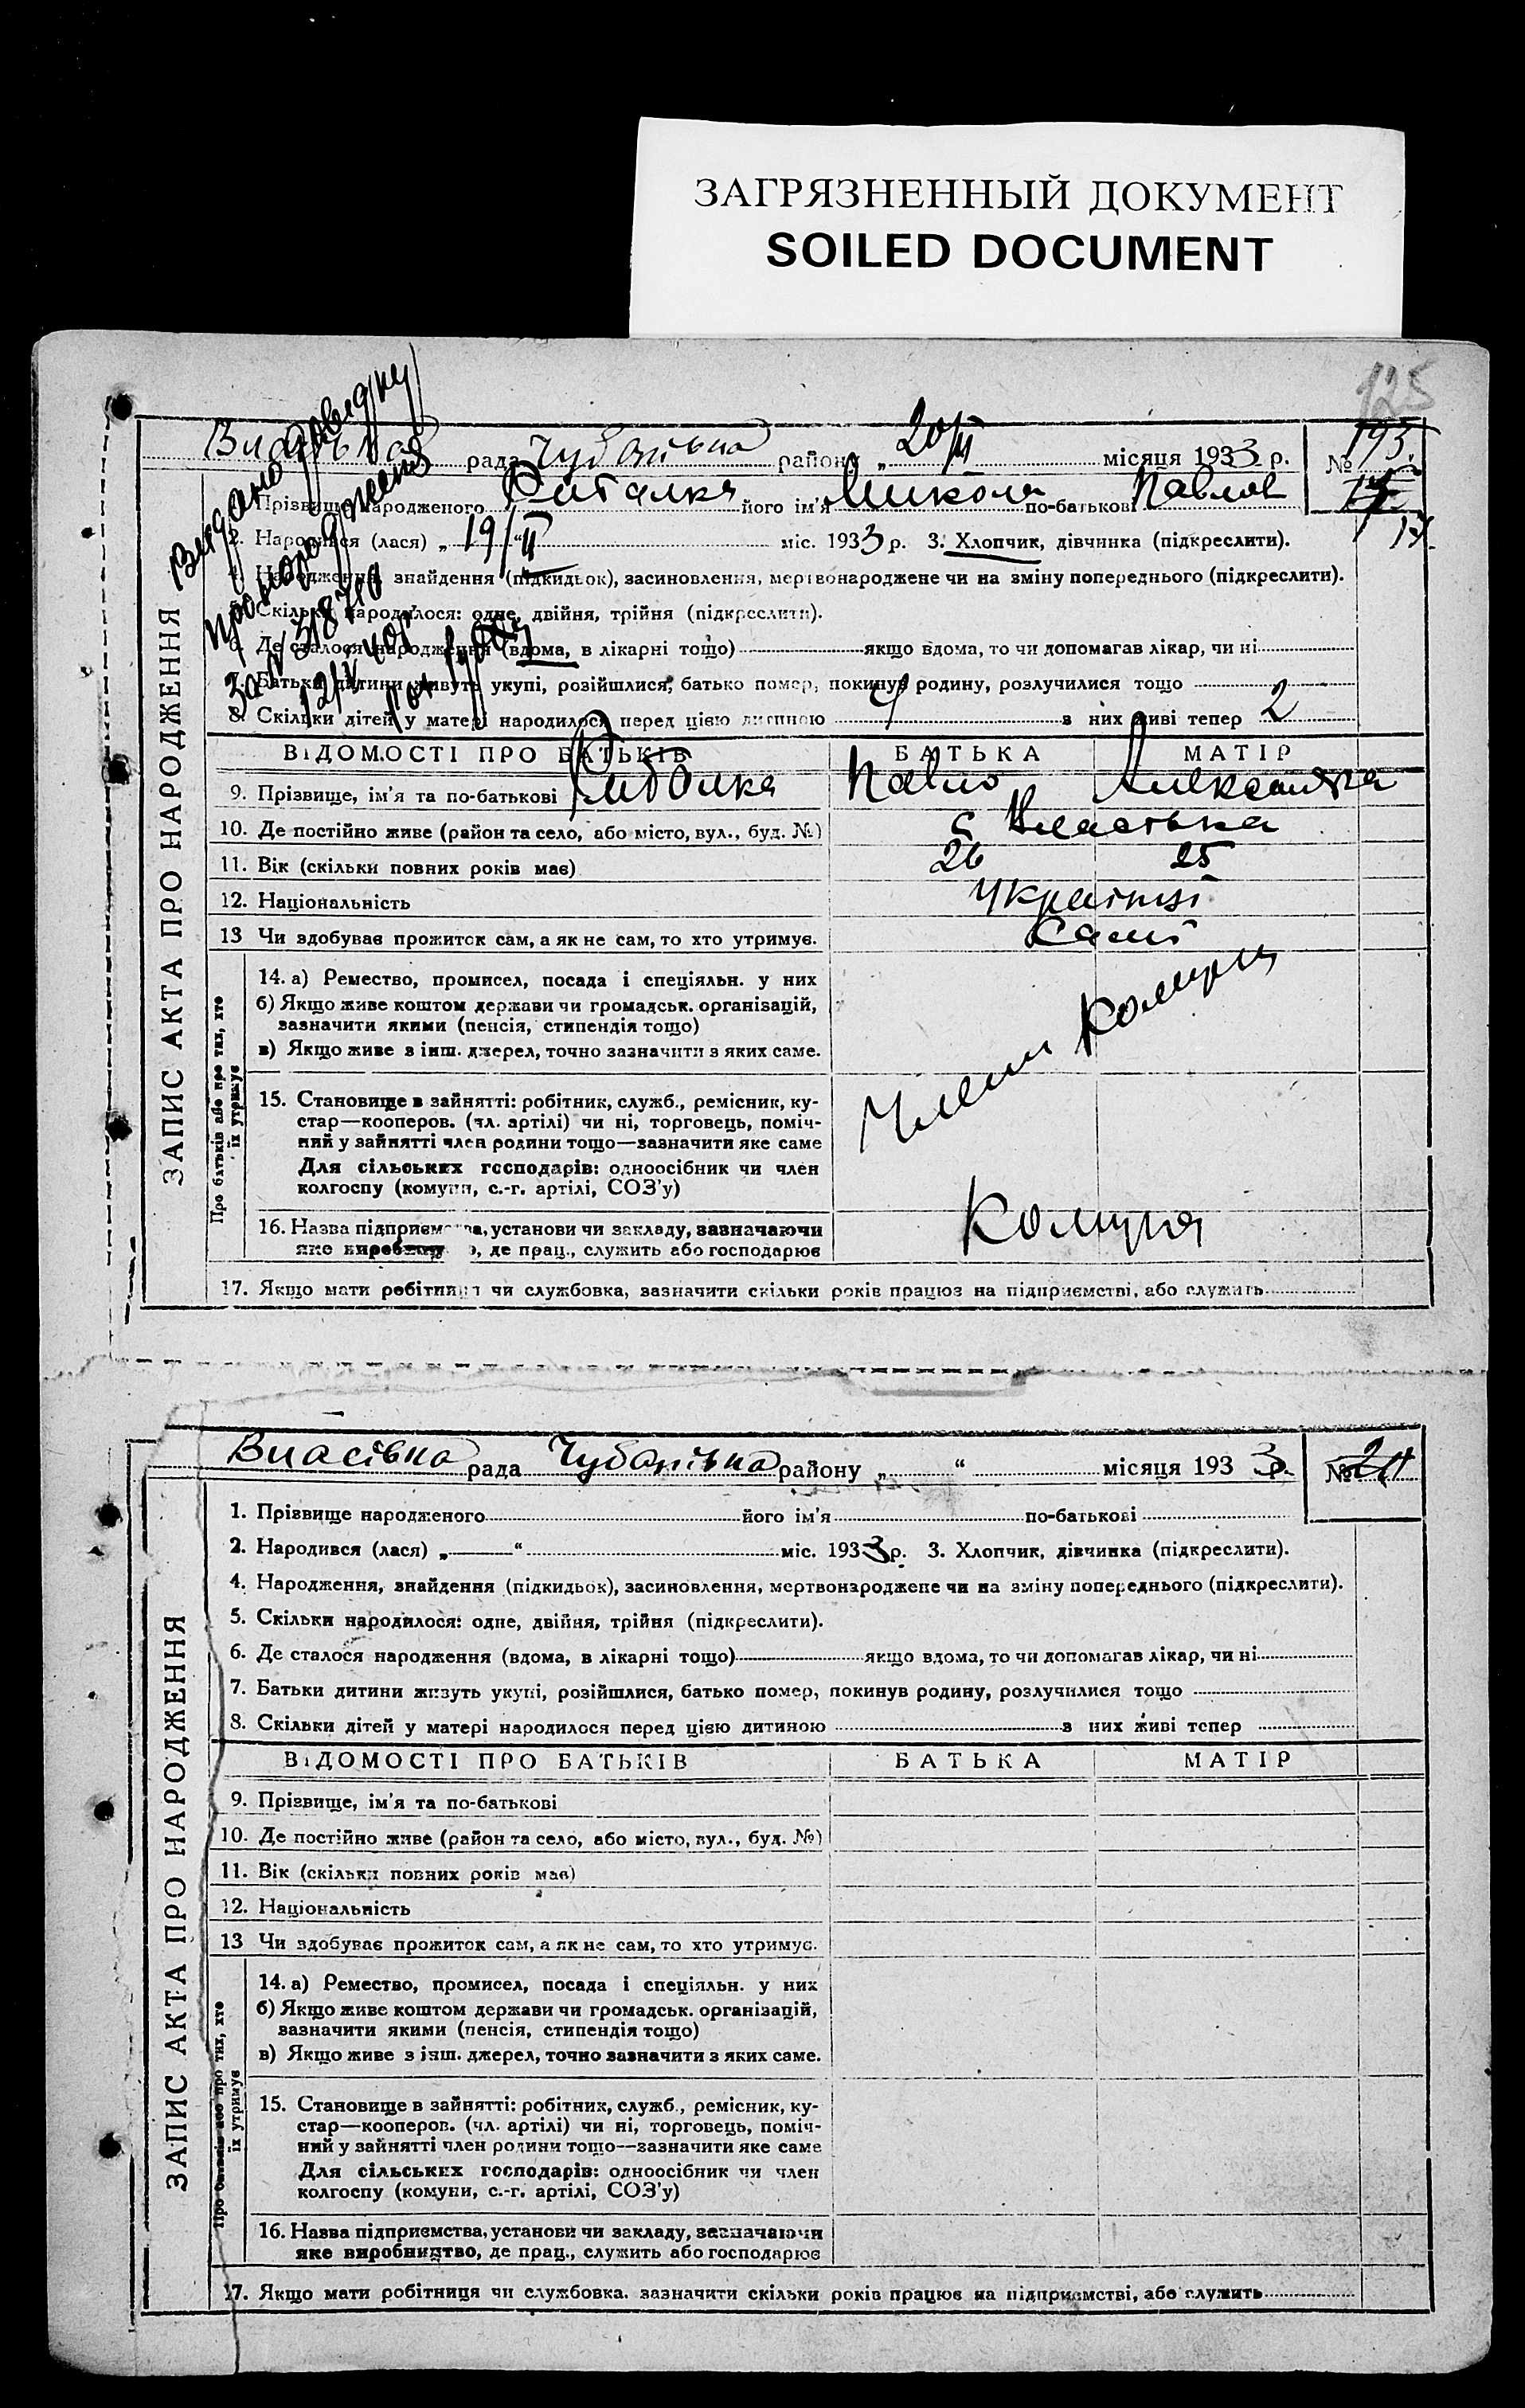 ЗАГРЯЗНЕННЫЙ ДОКУМЕНТ
SOILED DOCUMENT
125
рада Чубарівка району „ 20/II місяця 1933 р. № 193.
1. Прізвище народженого Рибалка його ім'я Микола по-батькові Павлов
2. Народився (лася) „ 19/II “ міс. 1933 р. 3. Хлопчик, дівчинка (підкреслити).
17.
4. Народження, знайдення (підкидьок), засиновлення, мертвонароджене чи на зміну попереднього (підкреслити).
5. Скільки народилося: одне, двійня, трійня (підкреслити).
6. Де сталося народження (вдома, в лікарні тощо) якщо вдома, то чи допомагав лікар, чи ні
7. Батьки дитини живуть укупі, розійшлися, батько помер, покинув родину, розлучилися тощо
8. Скільки дітей у матері народилося перед цією дитиною 4 з них живі тепер 2
Видано довідку
про народження
ЗАПИС АКТА ПРО НАРОДЖЕННЯ
ВІДОМОСТІ ПРО БАТЬКІВ БАТЬКА МАТІР
9. Прізвище, ім'я та по-батькові Рибалка Павло Александра
10. Де постійно живе (район та село, або місто, вул., буд. №) с Власівка
11. Вік (скільки повних років має) 26 25
12. Національність Українці
13 Чи здобував прожиток сам, а як не сам, то хто утримує. Самі
Про батьків або про тих, хто
їх утримує
14. а) Ремество, промисел, посада і спеціяльн. у них
б) Якщо живе коштом держави чи громадськ. організацій,
зазначити якими (пенсія, стипендія тощо)
в) Якщо живе з інш. джерел, точно зазначити з яких саме.
Члени комуни
15. Становище в зайнятті: робітник, служб., ремісник, ку-
стар—кооперов. (чл. артілі) чи ні, торговець, поміч-
ний у зайнятті член родини тощо—зазначити яке саме
Для сільських господарів: одноосібник чи член
колгоспу (комуни, с.-г. артілі, СОЗ'у)
16. Назва підприємства, установи чи закладу, зазначаючи
яке виробництво, де прац., служить або господарює
Комуна
17. Якщо мати робітниця чи службовка, зазначити скільки років працює на підприємстві, або служить
Власівка рада Чубарівка району „ “ місяця 1933 р. №
1. Прізвище народженого його ім'я по-батькові
2. Народився (лася) „ “ міс. 1933 р. 3. Хлопчик, дівчинка (підкреслити).
4. Народження, знайдення (підкидьок), засиновлення, мертвонароджене чи на зміну попереднього (підкреслити).
5. Скільки народилося: одне, двійня, трійня (підкреслити).
6. Де сталося народження (вдома, в лікарні тощо) якщо вдома, то чи допомагав лікар, чи ні
7. Батьки дитини живуть укупі, розійшлися, батько помер, покинув родину, розлучилися тощо
8. Скільки дітей у матері народилося перед цією дитиною з них живі тепер
ЗАПИС АКТА ПРО НАРОДЖЕННЯ
ВІДОМОСТІ ПРО БАТЬКІВ БАТЬКА МАТІР
9. Прізвище, ім'я та по-батькові
10. Де постійно живе (район та село, або місто, вул., буд. №)
11. Вік (скільки повних років має)
12. Національність
13 Чи здобував прожиток сам, а як не сам, то хто утримує.
Про батьків або про тих, хто
їх утримує
14. а) Ремество, промисел, посада і спеціяльн. у них
б) Якщо живе коштом держави чи громадськ. організацій,
зазначити якими (пенсія, стипендія тощо)
в) Якщо живе з інш. джерел, точно зазначити з яких саме.
15. Становище в зайнятті: робітник, служб., ремісник, ку-
стар—кооперов. (чл. артілі) чи ні, торговець, поміч-
ний у зайнятті член родини тощо—зазначити яке саме
Для сільських господарів: одноосібник чи член
колгоспу (комуни, с.-г. артілі, СОЗ'у)
16. Назва підприємства, установи чи закладу, зазначаючи
яке виробництво, де прац., служить або господарює
17. Якщо мати робітниця чи службовка. зазначити скільки років працює на підприємстві, або служить